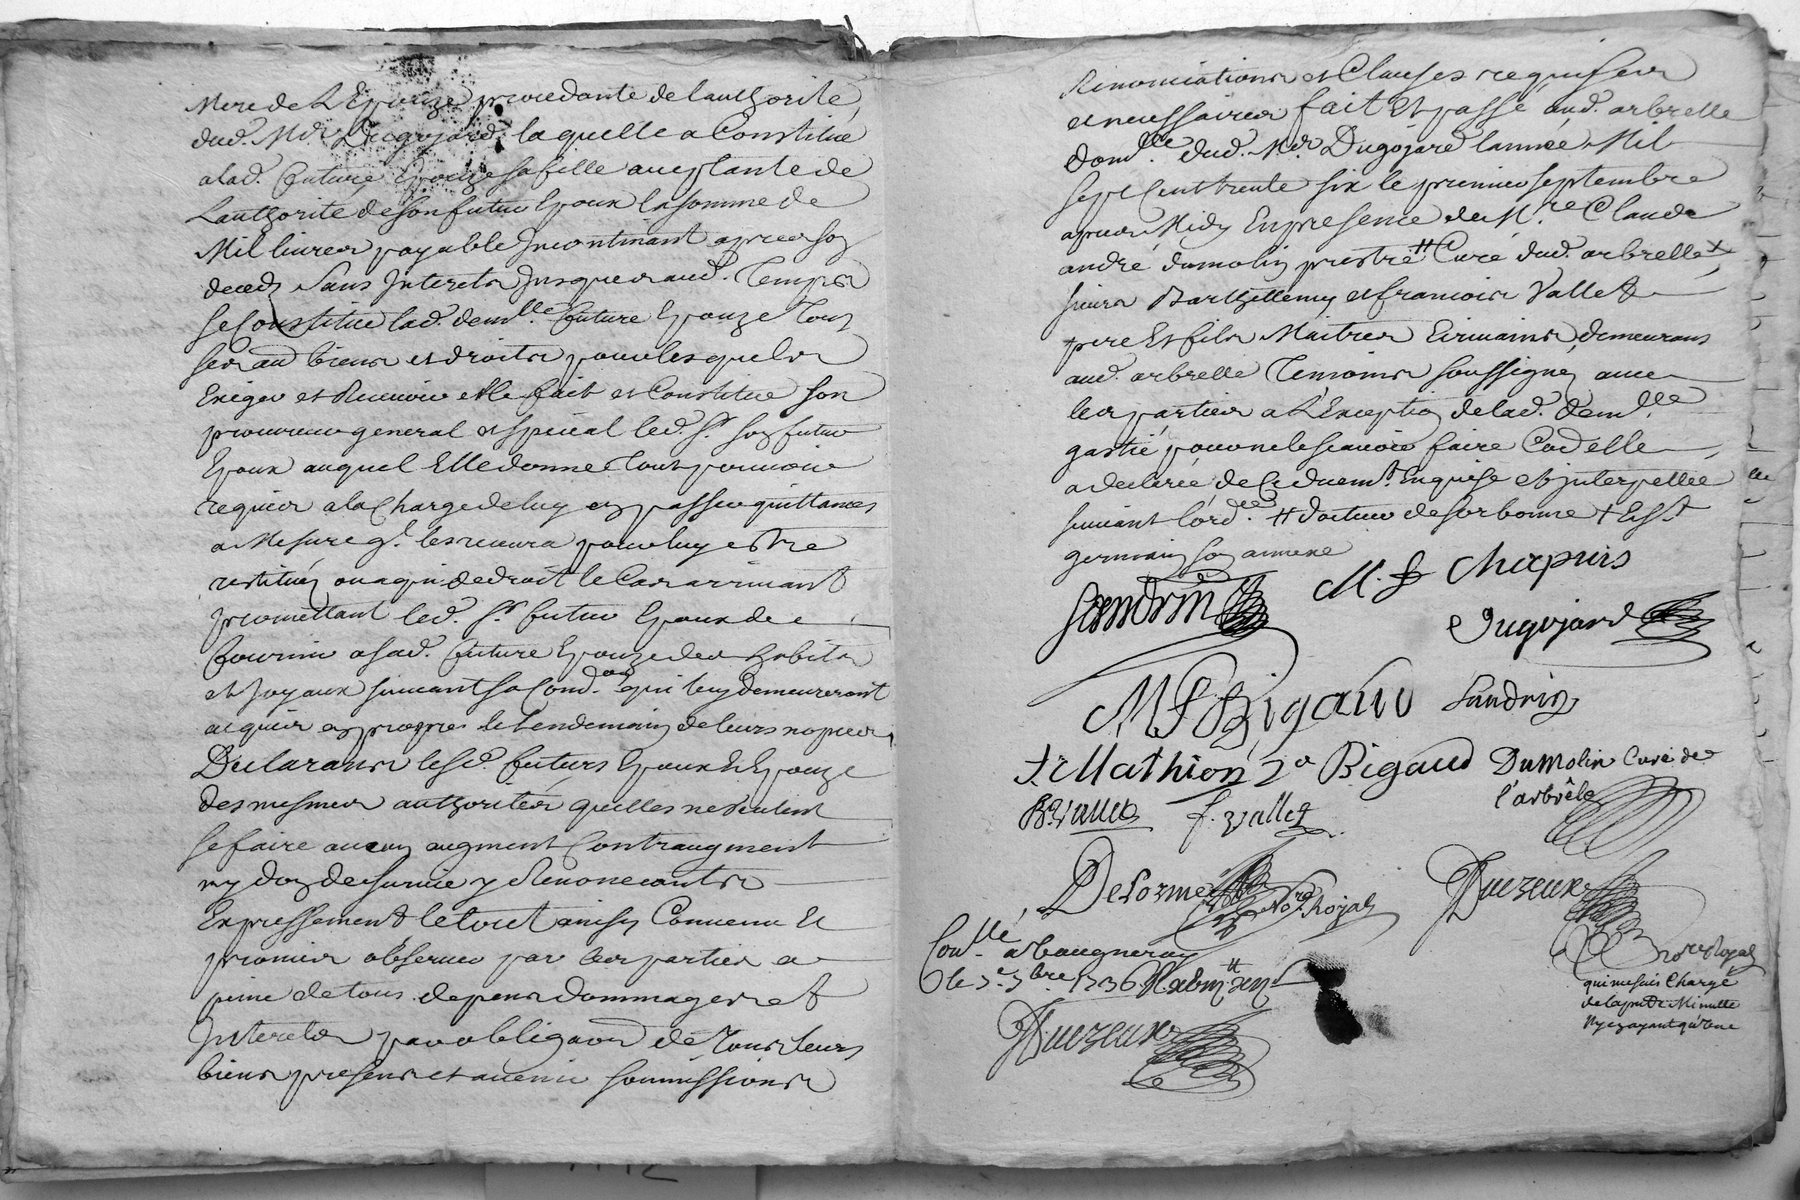 Mere de L'Epouze procedante de lauthorité
dud. Mr. Dugojard laquelle a Constitué
alad. future Epouze sa fille aceptante de
Lauthorite de son futur Epoux la somme de
Mil livres payable Incontinant apres son
deced Sans Interets Jusques aud. Temps
se Constitue lad. demlle. future Epouze Tous
ses au biens et droits pour lesquels
Exiger et Recevoir elle fait et Constitue son
procureur general et special led. Sr. son futur
Epoux auquel Elle donne Tout pouvoir
requis a la Charge de luy en passer quittances
a Mesure q. les recevra pour luy estre
restitués ou a qui de droit le Cas arrivant
promettant led. Sr. futur Epoux de
fournir a sad. future Epouze des habits
et Joyaux suivant sa Condon. qui luy demeureront
acquis en propre le Lendemain de leurs nopces
Declarans lesd. futurs Epoux Et Epouze
des mesmes authorités quilles ne veulent
se faire aucun augment Contraugment
ny don de survie y Renoncants
Expressement le tout ainsy Convenu Et
promis observer par les parties a
peine de tous depens dommages et
Interets par obligaon de Tous leurs
biens presens et avenir soumissions
Renonciations et Clauses requises
et necessaires fait Et passé aud. arbrelle
domlle. dud. Mr Dugojard lannée Mil
sept Cent trente six le premier septembre
apres Midy En presence de Mre Claude
andré dumolin prestre # Curé dud. arbrelle x
sieurs Barthellemy et francois Vallet
pere Et fils Maitres Ecrivains demeurans
aud. arbrelle Temoins soussignez avec
les parties a L'Exception de lad. demlle
gastié pour ne le scavoir faire Cad elle
a declaré de Ce duemt. Enquise et interpellée
suivant l'ordce. # docteur de sorbonne + Et St
germain son annexe
Sandrin M. F Chapuis
Dugojard
M F Bigaud Sandrin
Mathion Bigaud DuMolin Curé de
l'arbrêle
B. Vallet f. Vallet
Delorme Nore. Royal Duczeux
Conllé a Vaugneray
le 3e 7bre 1736
Duczeux
Nore Royal
qui me suis Chargé
de la pnte Minutte
Ny en ayant qu'une